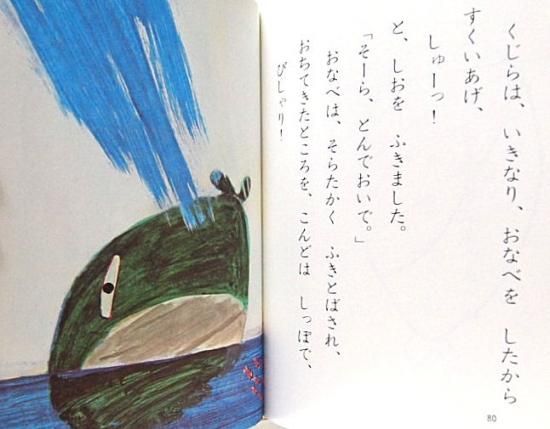 くじらは、いきなり、おなべを　したから
すくいあげ、
しゅーっ！
と、しおを　ふきました。
「そーら、とんでおいで。」
おなべは、そらたかく　ふきとばされ、
おちてきたところを、こんどは　しっぽで、
ぴしゃり！
80